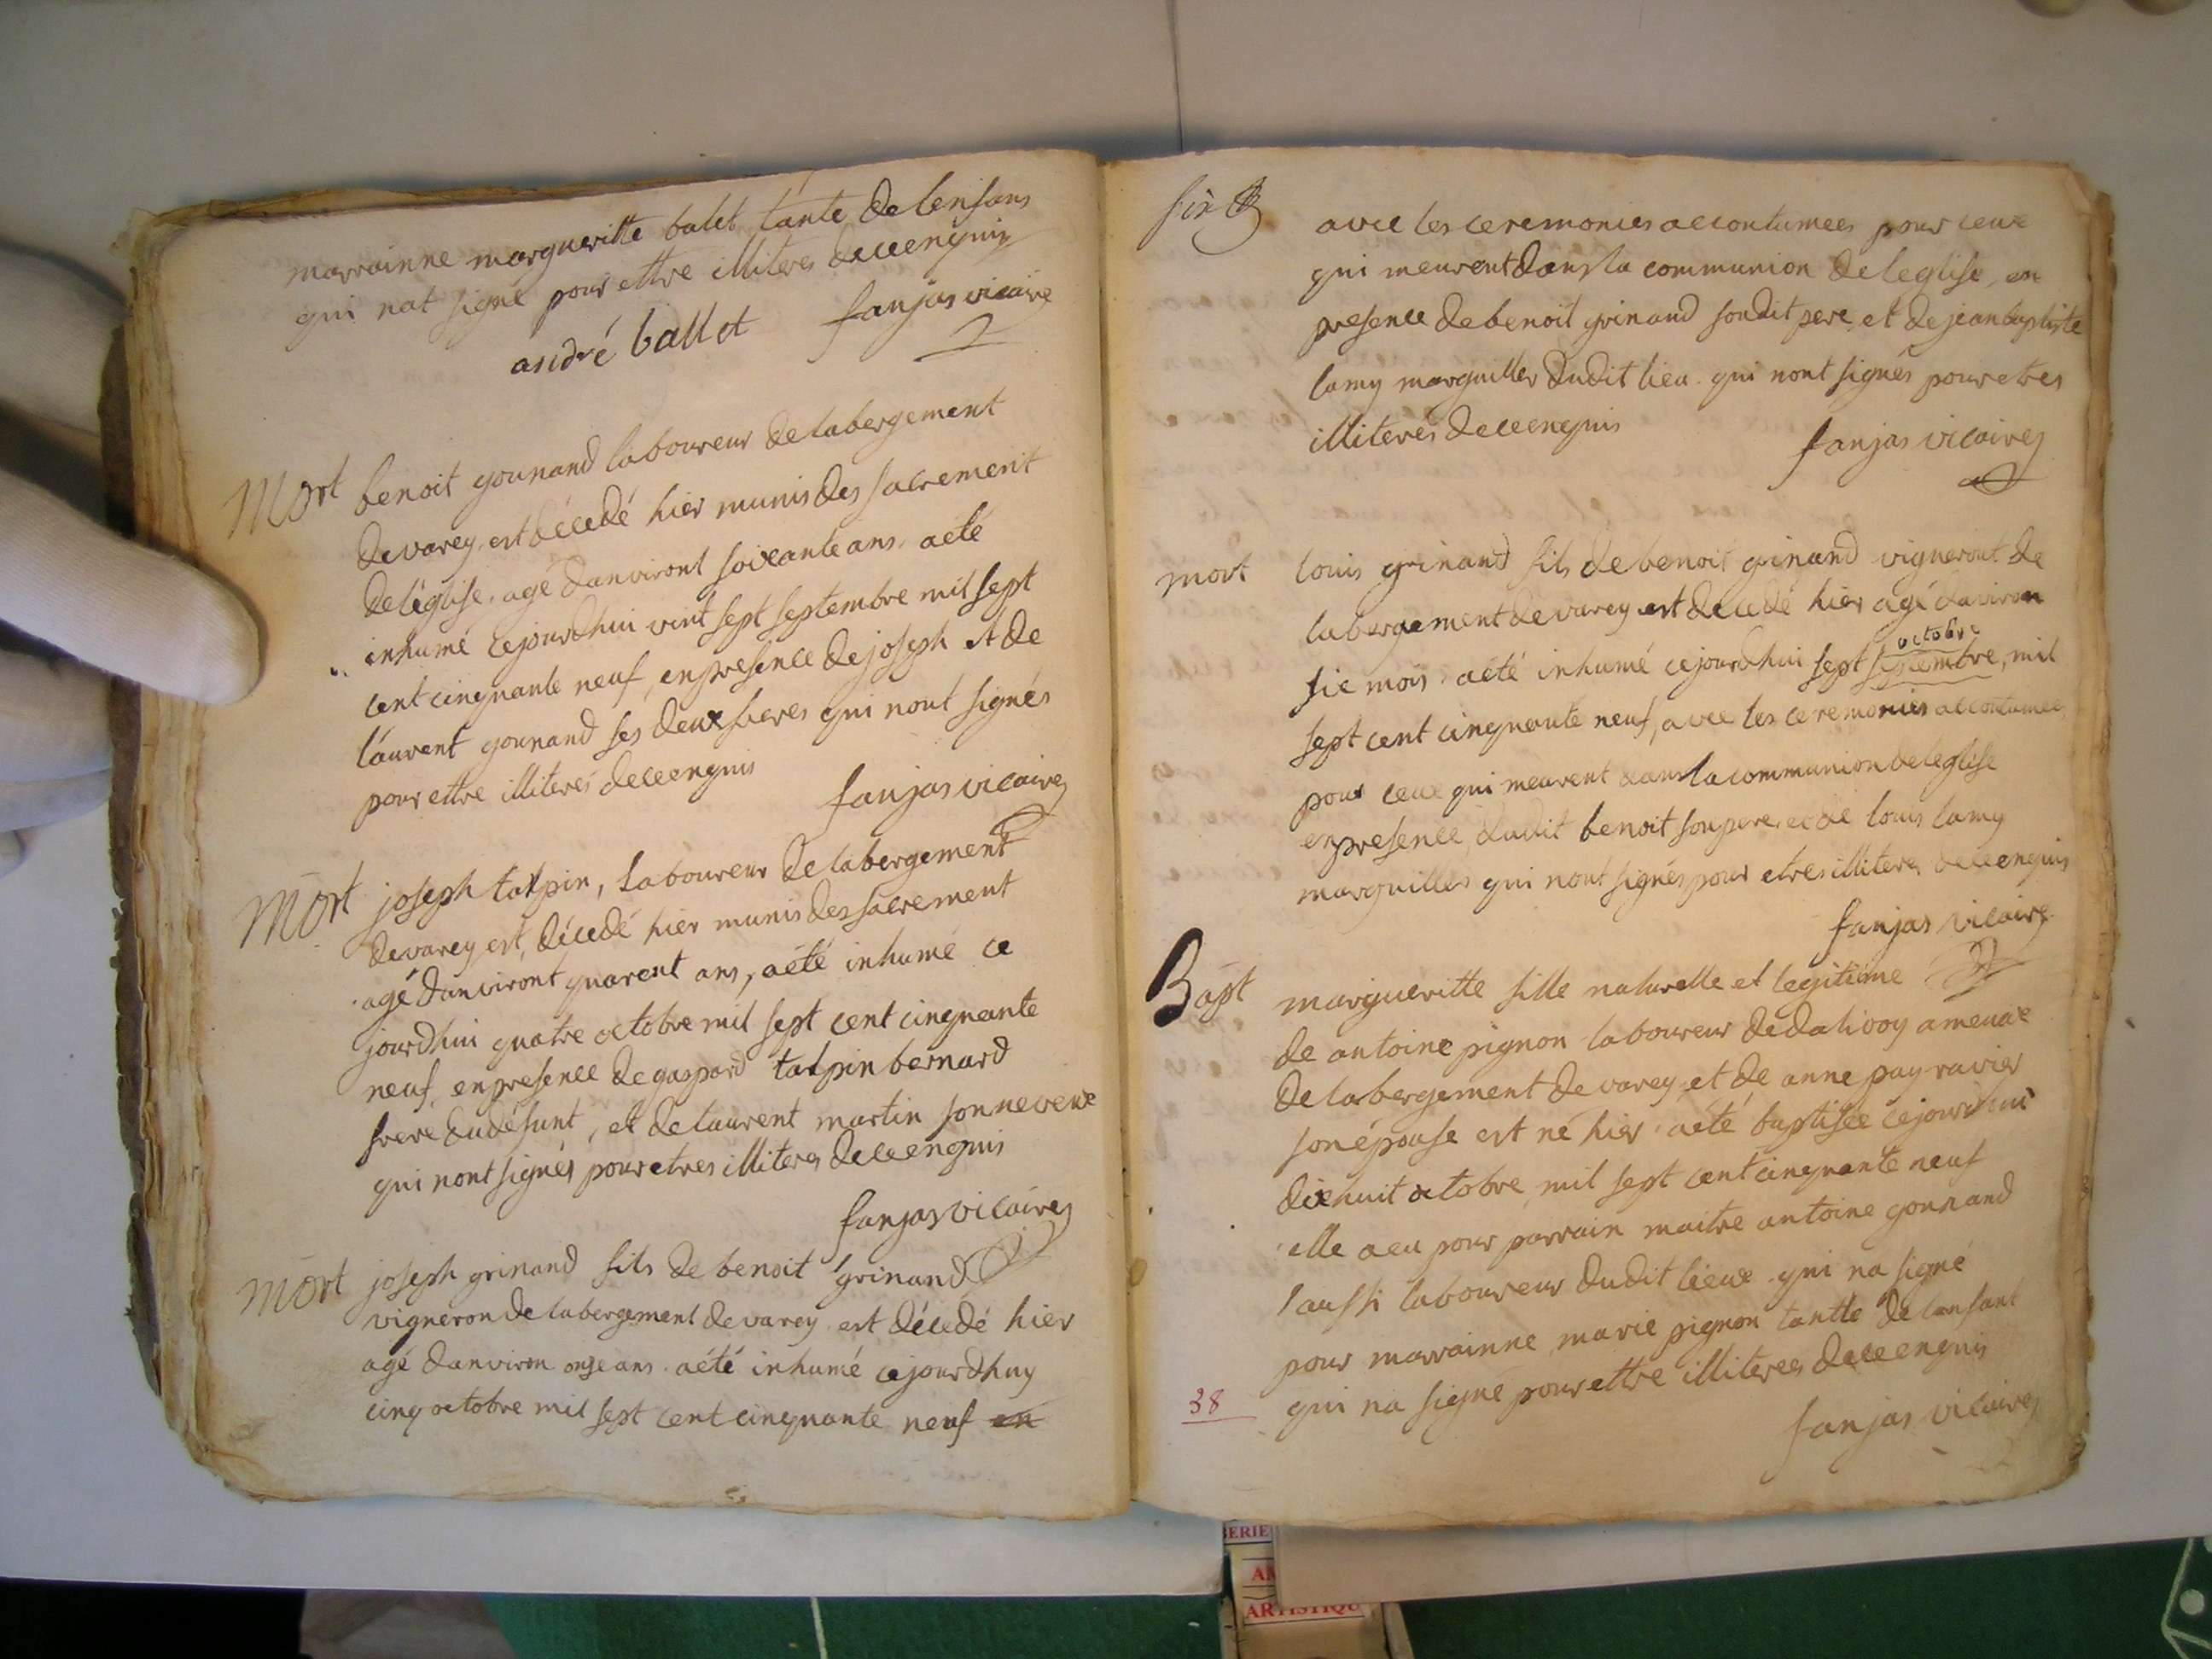 marrainne margueritte balet tante de lenfans
qui nat signé pour ettre illiteres deceenquis
andré ballet fanjas vicaire
Mort benoit gounand laboureur de labergement
devarey est décedé hier munis des sacrement
deléglise. agé danviront soixante ans. aété
inhumé cejourdhui vint sept septembre mil sept
cent cinquante neuf, enpresence de joseph et de
láurent gounand ses deux freres qui nont signés
pour ettre illiterés deceenquis
fanjas vicaire
Mort joseph talpin, laboureur de labergement
devarey est, décedé hier munis des sacrement
agé danviront quarent ans, aété inhumé ce
jourdhui quatre octobre mil sept cent cinquante
neuf, enpresence de gaspard talpin bernard
frere dudéfunt, et de laurent martin son neveux
qui nont signés pour etres illiteres deceenquis
fanjas vicaire
Mort joseph grinand fils de benoit grinand
vigneron de labergement devarey est décedé hier
agé danviron onse ans. aété inhumé cejourdhuy
cinq octobre mil sept cent cinquante neuf en
six
avec les ceremonies accoutumees pour ceux
qui meurent dans la communion deleglise, en
presence de benoit grinand sondit pere, et de jean baptiste
lamy marguiller dudit lieu. qui nont signés pour etres
illiterés deceenquis
fanjas vicaire
mort louis grinand fils de benoit grinand vigneront de
labergement devarey est decedé hier agé daviron
six mois. aété inhumé cejourdhui sept septembre, mil
octobre
sept cent cinquante neuf, avec les ceremonies accoutumees
pour ceux qui meurent dans la communion deleglise
enpresence dudit benoit son pere, et de louis lamy
marguiller qui nont signés pour etres illiteres deceenquis
fanjas vicaire
Bapt margueritte fille naturelle et legitime
de antoine pignon laboureur dedalivoy ameuax
de labergement de varey et de anne pay ravier
son épouse est né hier. aété baptisée cejourdhui
dixhuit octobre mil sept cent cinquante neuf
elle aeu pour parrain maitre antoine gounand
aussi laboureur dudit lieux qui na signé
pour marrainne marie pignon tantte de lanfant
qui na signé pour ettre illiteres deceenquis
38
fanjas vicaire
BERIE
AM
ARTISTIQU